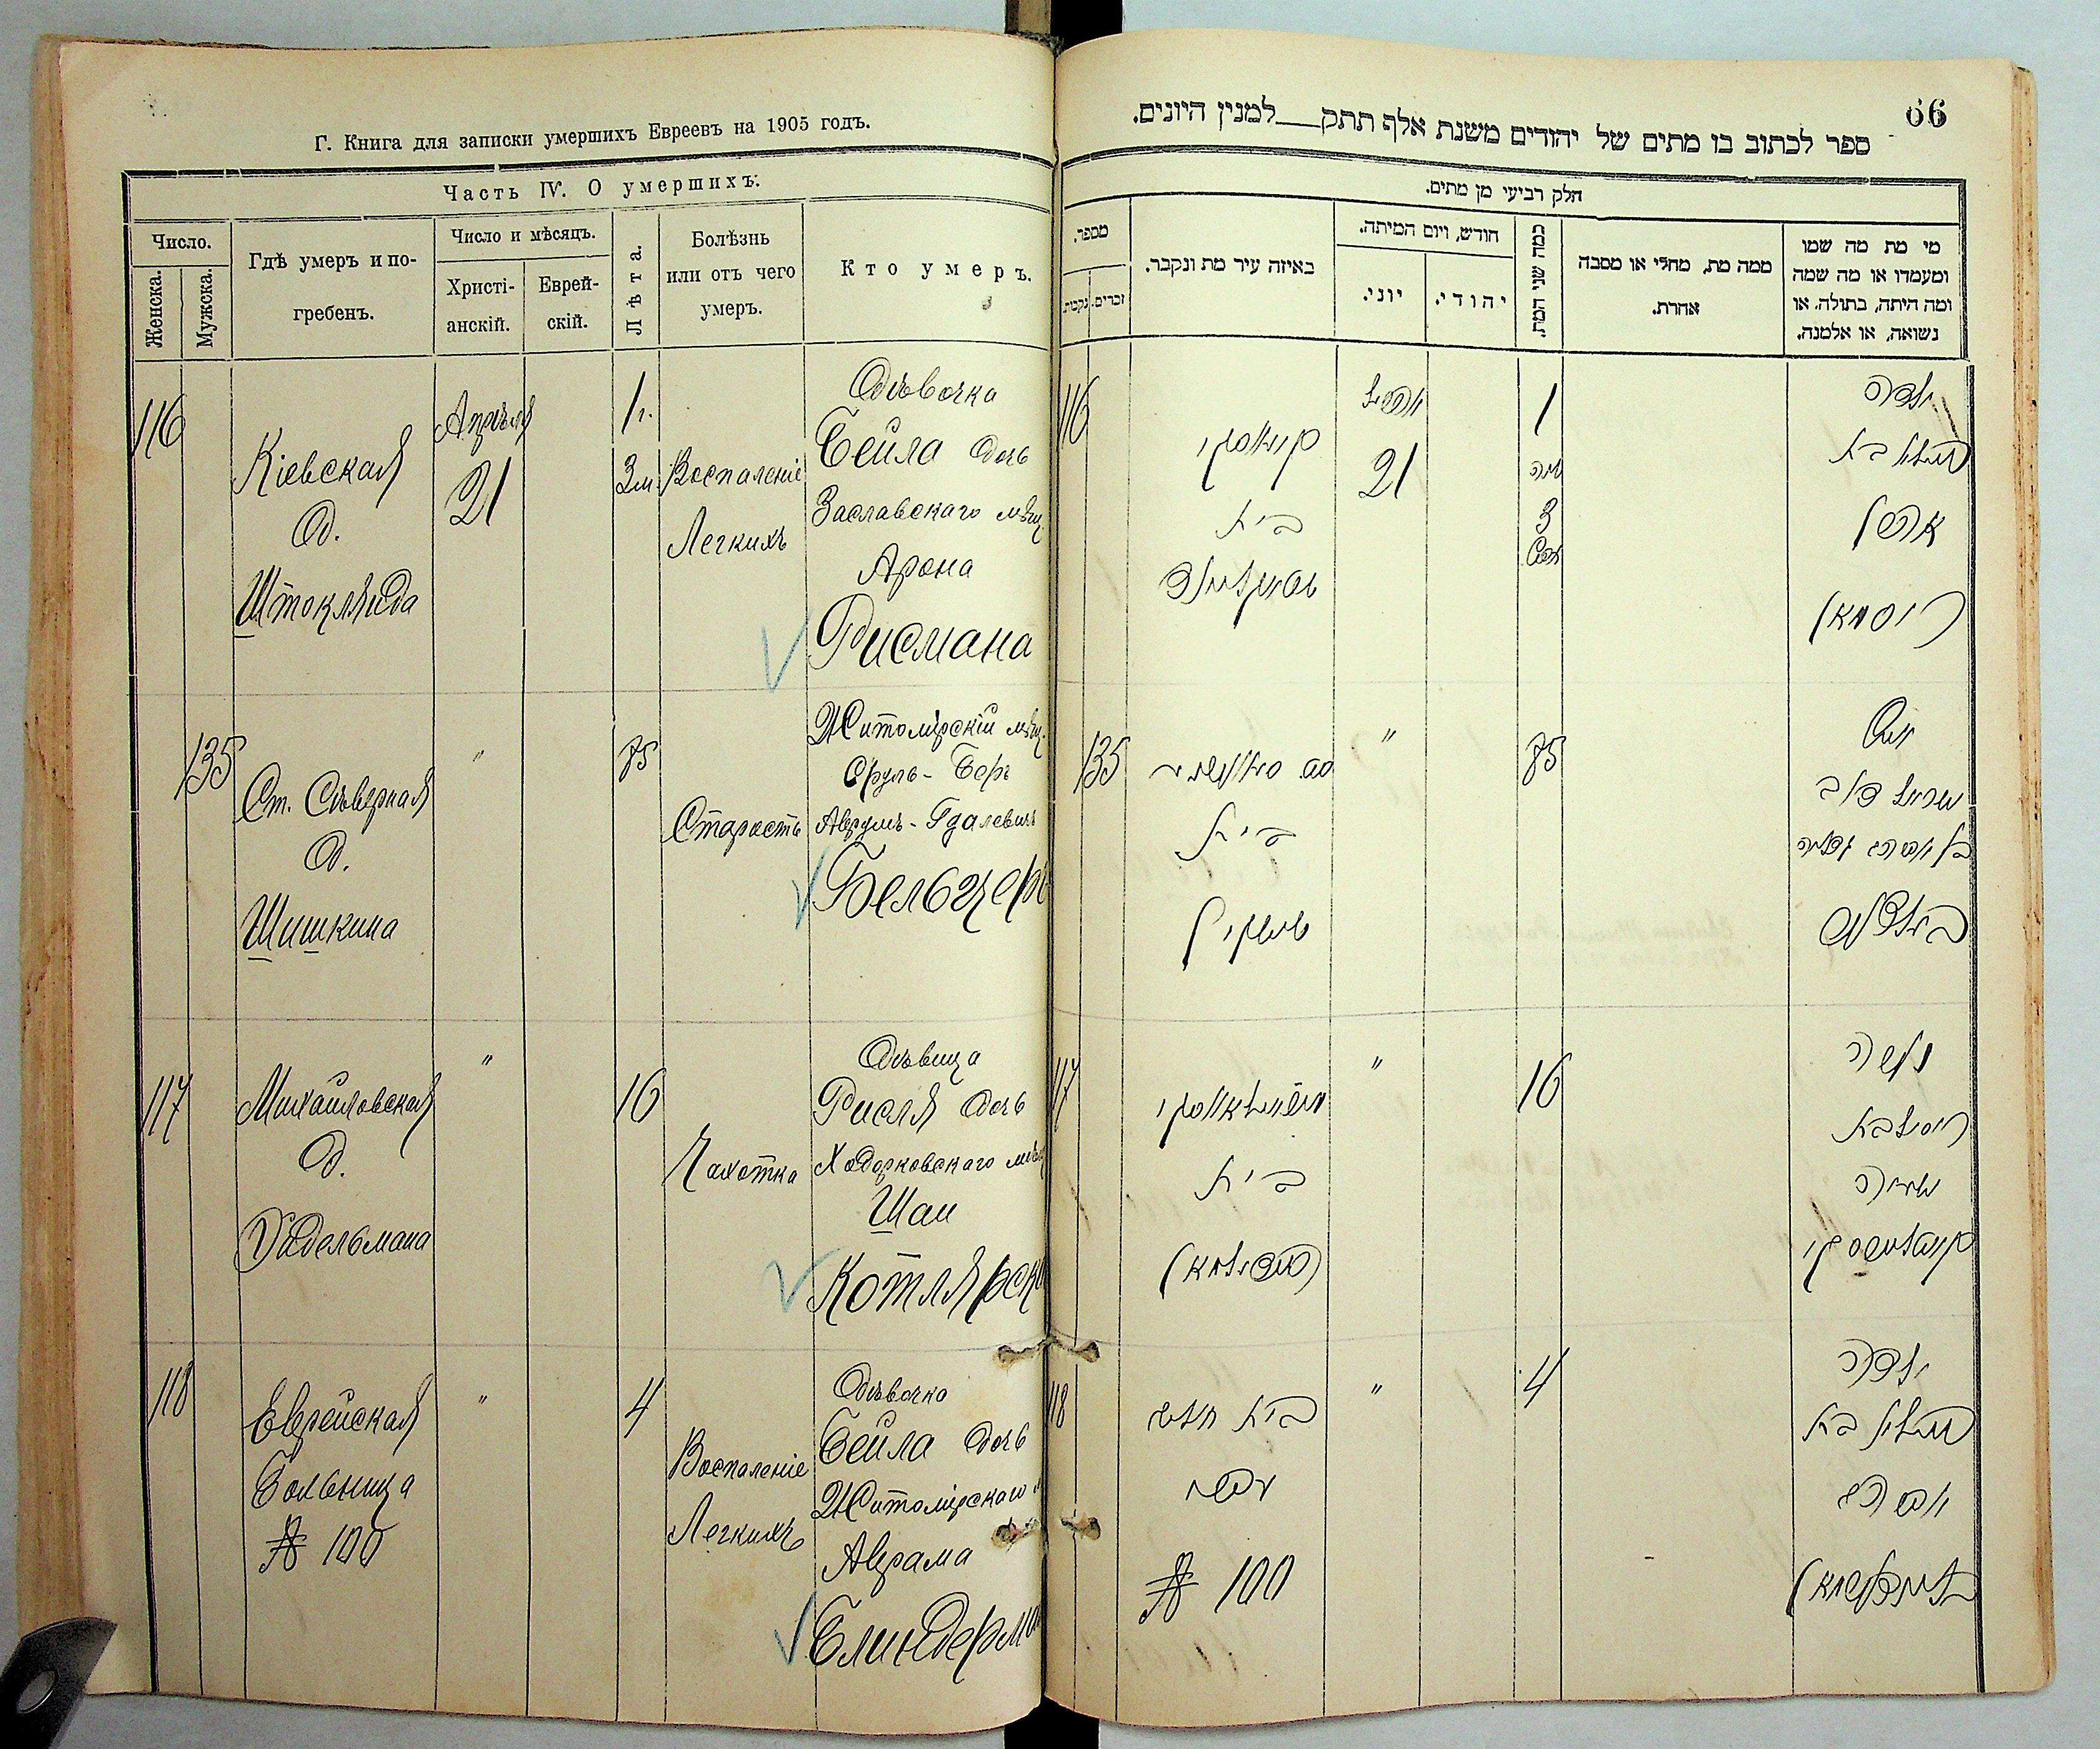 Г. Книга для записки умершихъ Евреевъ на 1905 годъ.
Часть IV. О умершихъ.
Число.
Женска.
Мужска.
Гдѣ умеръ и по-
гребенъ.
Число и мѣсяцъ.
Христі-
анскій.
Еврей-
скій.
Лѣта.
Болѣзнь
или отъ чего
умеръ.
Кто умеръ.
116
Кіевская
д.
Штоклянда
Апрѣля
21
1 г.
3 м
Воспаленіе
Легкихъ
Дѣвочка
Бейла дочь
Заславскаго мѣщ
Арона
Рисмана
135
Ст. Сѣверная
д.
Шишкина
"
75
Старость
Житомірскій мѣщ.
Сруль-Беръ
Аврумъ-Гдалевичъ
Бельцеръ
117
Михайловская
д.
Удельмана
"
16
Чахотка
Дѣвица
Рисля дочь
Ходорковскаго мѣщ
Шаи
Котлярск
118
Еврейская
Больница
№ 100
"
4
Воспаленіе
Легкихъ
Дѣвочка
Бейла дочь
Житомірскаго м
Аврама
Блиндерма
66
ספר לכתוב בו מתים של יהודים משנת אלף תתק למנין היונים.
חלק רביעי מן מתים.
מספר.
נקבות.
זכרים.
באיזה עיר מת ונקבר.
חודש, ויום המיתה.
יוני.
יהודי.
כמה שני המת.
ממה מת, מחלי או מסבה
אחרת.
מי מת מה שמו
ומעמדו או מה שמה
ומה היתה, בתולה, או
נשואה, או אלמנה.
116
בית
21
1
3
ילדה
ביילא בת
אהרן
ריסמאן
135
בית
שישקין
"
75
איש
ישראל בער
בן אברהם גדליה
117
בית
"
16
נערה
ישעיה
118
בית
№ 100
"
4
ילדה
ביילא בת
אברהם
בלינדערמאן